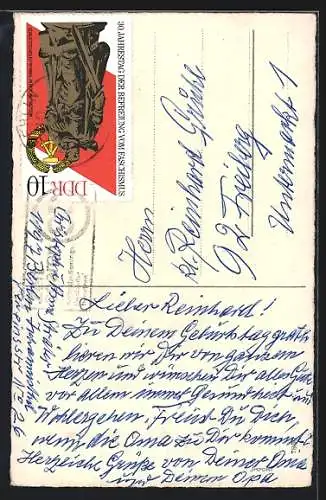 30. JAHRESTAG DER BEFREIUNG VOM FASCHISMUS
DDR 10
Herrn
Reinhard
92 Freiberg
Untermarkt 1
Lieber Reinhard!
Zu Deinem Geburtstag gratu-
lieren wir Dir von ganzem
Herzen und wünschen Dir alles Gute
vor allem immer Gesundheit und
Wohlergehen. Freust Du Dich,
wenn die Oma zu Dir kommt?
Herzliche Grüße von Deiner Oma
und Deinem Opa